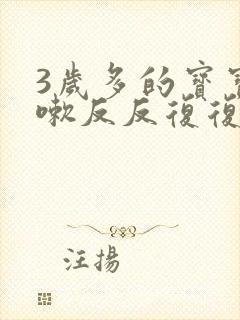 3歲多的寶寶
嗽反反復復
汪揚